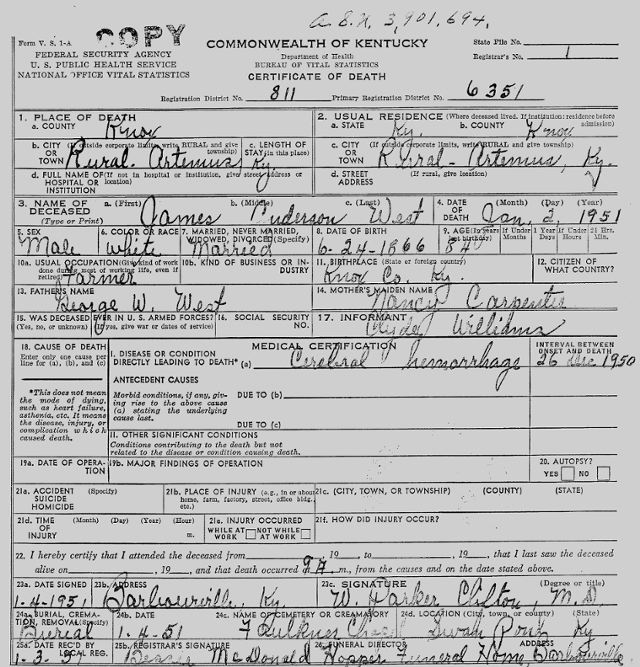 A.S.N. 3,901,694.
COPY
Form V. S. 1-A
FEDERAL SECURITY AGENCY
U. S. PUBLIC HEALTH SERVICE
NATIONAL OFFICE VITAL STATISTICS
COMMONWEALTH OF KENTUCKY
Department of Health
BUREAU OF VITAL STATISTICS
CERTIFICATE OF DEATH
State File No.
Registrar's No. 1
Registration District No. 811 Primary Registration District No. 6351
1. PLACE OF DEATH
a. COUNTY Knox
2. USUAL RESIDENCE (Where deceased lived. If institution: residence before admission)
a. STATE Ky. b. COUNTY Knox
b. CITY OR TOWN (If outside corporate limits, write RURAL and give township) Rural. Artemus, Ky
c. LENGTH OF STAY (in this place)
c. CITY OR TOWN (If outside corporate limits, write RURAL and give township) Rural - Artemus, Ky.
d. FULL NAME OF HOSPITAL OR INSTITUTION (If not in hospital or institution, give street address or location)
d. STREET ADDRESS (If rural, give location)
3. NAME OF DECEASED (Type or Print)
a. (First) James b. (Middle) c. (Last) West
4. DATE OF DEATH (Month) (Day) (Year) Jan. 2, 1951
5. SEX Male
6. COLOR OR RACE Whit
7. MARRIED, NEVER MARRIED, WIDOWED, DIVORCED (Specify) Married
8. DATE OF BIRTH 6-24-1866
9. AGE (In years last birthday) 84 If Under 1 Year Months Days If Under 24 Hrs. Hours Min.
10a. USUAL OCCUPATION (Give kind of work done during most of working life, even if retired) Farmer
10b. KIND OF BUSINESS OR INDUSTRY
11. BIRTHPLACE (State or foreign country) Knox Co. Ky.
12. CITIZEN OF WHAT COUNTRY?
13. FATHER'S NAME George W. West
14. MOTHER'S MAIDEN NAME Nancy Carpenter
15. WAS DECEASED EVER IN U. S. ARMED FORCES? (Yes, no, or unknown) (If yes, give war or dates of service)
16. SOCIAL SECURITY NO.
17. INFORMANT Clyde Williams
18. CAUSE OF DEATH
Enter only one cause per line for (a), (b), and (c)
MEDICAL CERTIFICATION
I. DISEASE OR CONDITION DIRECTLY LEADING TO DEATH* (a) Cerebral hemorrhage
INTERVAL BETWEEN ONSET AND DEATH
26 Dec 1950
*This does not mean the mode of dying, such as heart failure, asthenia, etc. It means the disease, injury, or complication which caused death.
ANTECEDENT CAUSES
Morbid conditions, if any, giving rise to the above cause (a) stating the underlying cause last.
DUE TO (b)
DUE TO (c)
II. OTHER SIGNIFICANT CONDITIONS
Conditions contributing to the death but not related to the disease or condition causing death.
19a. DATE OF OPERATION
19b. MAJOR FINDINGS OF OPERATION
20. AUTOPSY?
YES NO
21a. ACCIDENT SUICIDE HOMICIDE (Specify)
21b. PLACE OF INJURY (e.g., in or about home, farm, factory, street, office bldg., etc.)
21c. (CITY, TOWN, OR TOWNSHIP) (COUNTY) (STATE)
21d. TIME OF INJURY (Month) (Day) (Year) (Hour) m.
21e. INJURY OCCURRED
WHILE AT WORK NOT WHILE AT WORK
21f. HOW DID INJURY OCCUR?
22. I hereby certify that I attended the deceased from , 19 , to , 19 , that I last saw the deceased
alive on , 19 , and that death occurred 9 A m., from the causes and on the date stated above.
23a. DATE SIGNED 1-4-1951
23b. ADDRESS Barbourville Ky
23c. SIGNATURE (Degree or title) W. Harker Clifton M.D
24a. BURIAL, CREMATION, REMOVAL (Specify) Burial
24b. DATE 1-4-51
24c. NAME OF CEMETERY OR CREAMATORY Faulkner
24d. LOCATION (City, town, or county) (State) Swan Pond Ky
25a. DATE REC'D BY LOCAL REG. 1-3-51
25b. REGISTRAR'S SIGNATURE McDonald
26. FUNERAL DIRECTOR ADDRESS Hopper Funeral Home Barbourville